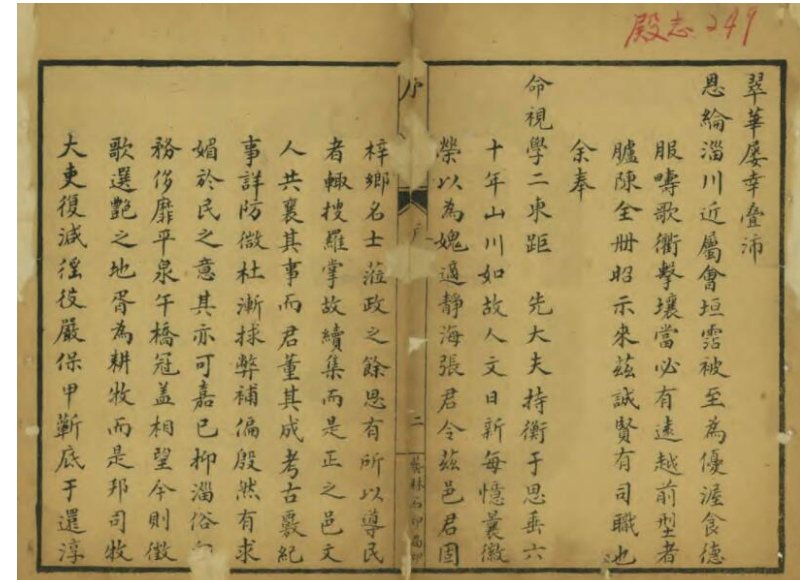 殿志 249
翠華屢幸疊沛
恩綸淄川近屬會垣霑被至為優渥食德
服疇歌衢擊壤當必有遠越前型者
臚陳全册昭示來茲誠賢有司職也
余奉
命視學二東距 先大夫持衡于思垂六
十年山川如故人文日新每憶曩徽
榮以為媿適靜海張君令茲邑君固
序
二
藝林石印局印
梓鄉名士蒞政之餘思有所以導民
者輙搜羅掌故續集而是正之邑文
人共襄其事而君董其成考古覈紀
事詳防微杜漸捄弊補偏殷然有求
媚於民之意其亦可嘉已抑淄俗
務侈靡平泉午橋冠盖相望今則徵
歌選艷之地胥為耕牧而是邦司牧
大吏復減徭役嚴保甲蘄底于還淳